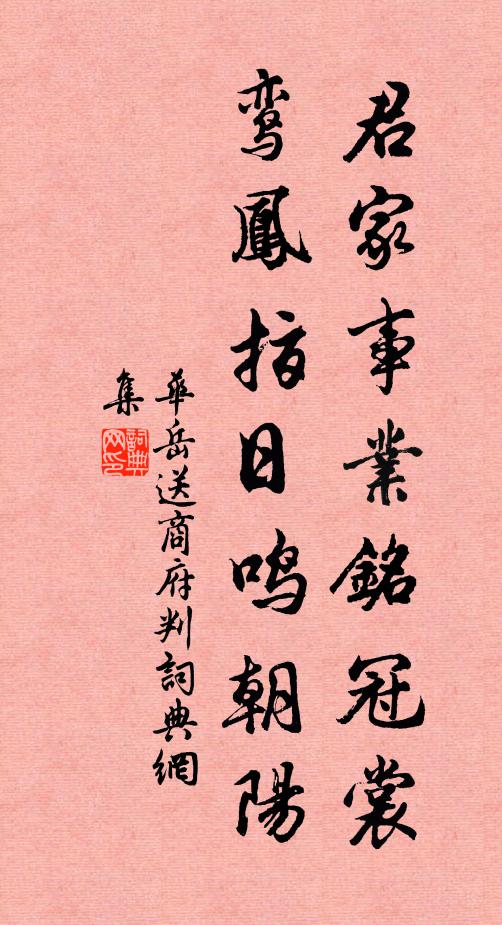 君家事業銘冠裳
鸾鳳指日鸣朝陽
華岳送商府判詞典網
集
詞典网印